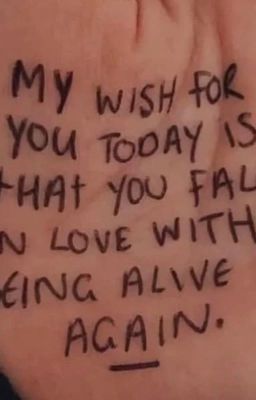 MY WISH FOR
YOU TODAY IS
THAT YOU FAL
N LOVE WITH
EING ALIVE
AGAIN.